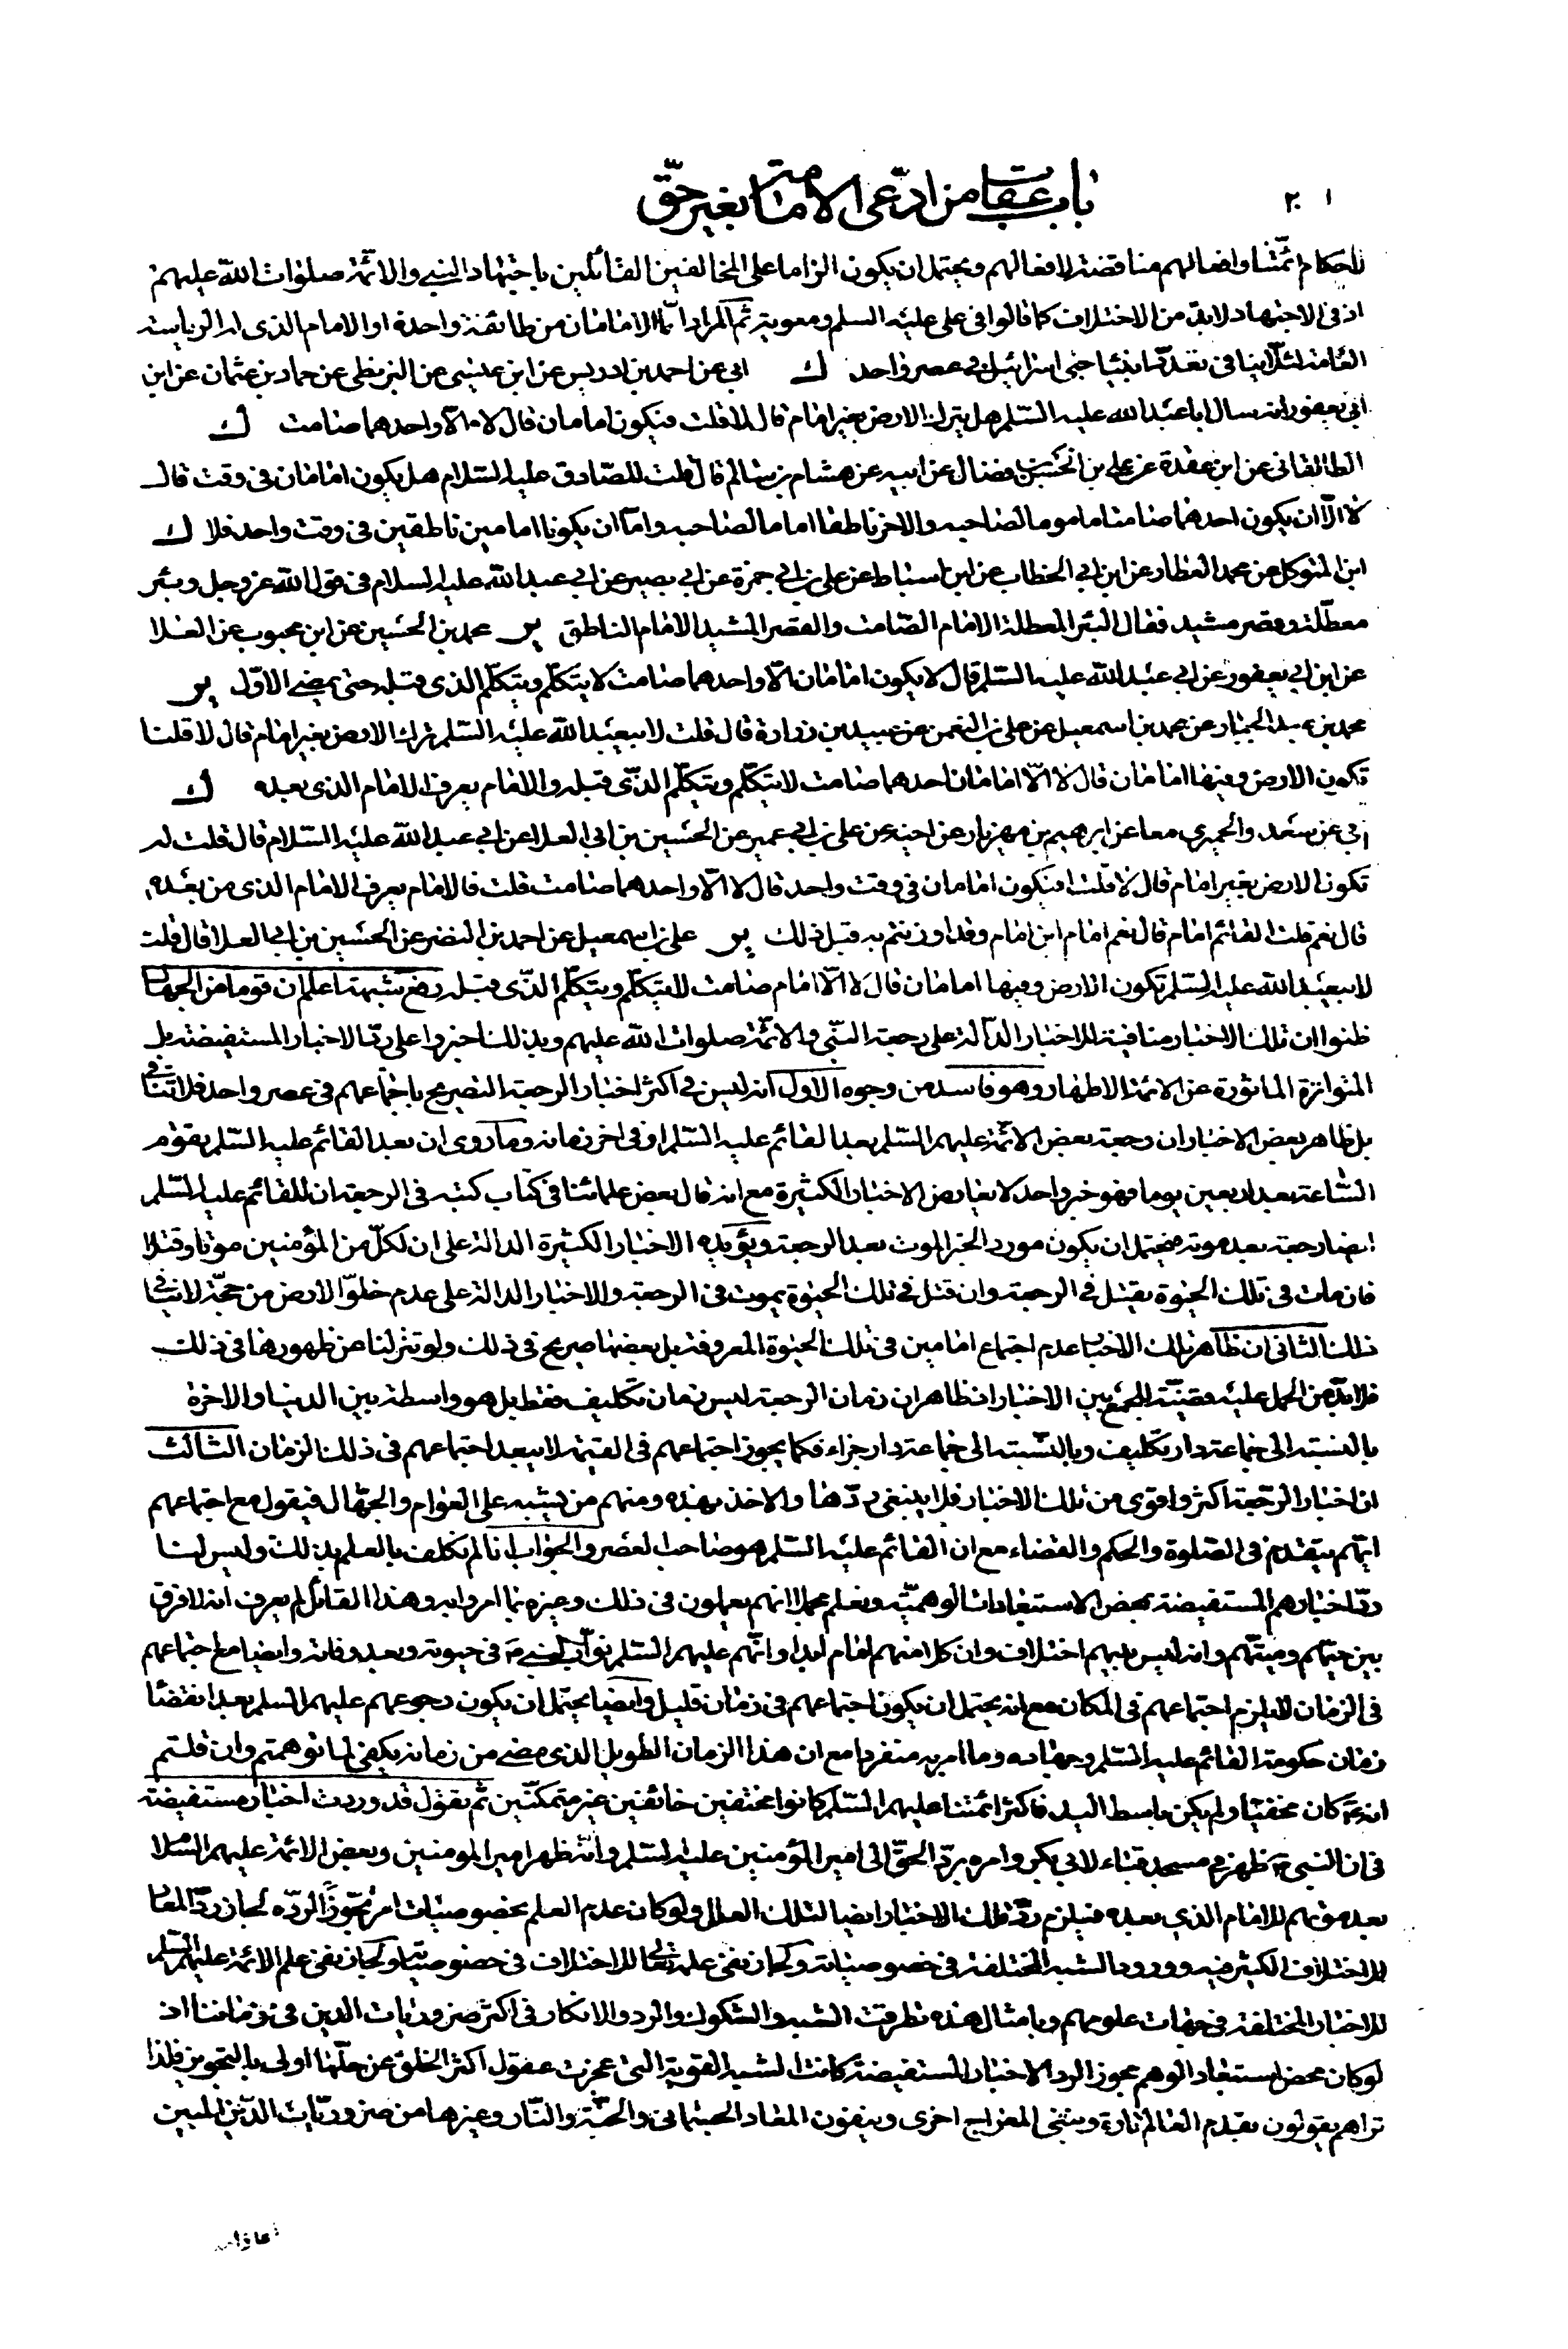 باب عقاب من ادعى الامامة بغير حق
٢٠١
لاحكام ائمتنا وافعالهم مناقضة لافعالهم ويحتمل ان يكون الزاما على المخالفين القائلين باجتهاد النبي والائمة صلوات الله عليهم
اذ في الاجتهاد لابد من الاختلاف كما قالوا في علي عليه السلم ومعوية ثم المراد اما الامامان من طائفة واحدة او الامام الذي له الرياسة
العامة لئلا ينافي تعدد انبياء بني اسرائيل في عصر واحد ك ابي عن احمد بن ادريس عن ابن عيسى عن البزنطي عن حماد بن عثمان عن ابن
ابي يعفور انه سال ابا عبد الله عليه السلم هل يترك الارض بغير امام قال لا قلت فيكون امامان قال لا الا واحدهما صامت ك
الطالقاني عن ابن عقدة عن علي بن الحسن بن فضال عن ابيه عن هشام بن سالم قال قلت للصادق عليه السلام هل يكون امامان في وقت قال
لا الا ان يكون احدهما صامتا ماموما لصاحبه والاخر ناطقا اماما لصاحبه واما ان يكونا امامين ناطقين في وقت واحد فلا ك
ابن المتوكل عن محمد العطار عن ابن ابي الخطاب عن ابن اسباط عن علي بن ابي حمزة عن ابي بصير عن ابي عبد الله عليه السلام في قول الله عز وجل وبئر
معطلة وقصر مشيد فقال البئر المعطلة الامام الصامت والقصر المشيد الامام الناطق ير محمد بن الحسين عن ابن محبوب عن العلا
عن ابن ابي يعفور عن ابي عبد الله عليه السلم قال لا يكون امامان الا واحدهما صامت لا يتكلم ويتكلم الذي قبله حتى يمضي الاول ير
محمد بن عبد الجبار عن محمد بن اسمعيل عن علي بن النعمن عن عبيد بن زرارة قال قلت لابيعبد الله عليه السلم ترك الارض بغير امام قال لا قلنا
تكون الارض وفيها امامان قال لا الا امامان احدهما صامت لا يتكلم ويتكلم الذي قبله والامام يعرف الامام الذي بعده ك
ابي عن سعد والحميري معا عن ابرهيم بن مهزيار عن اخيه عن علي بن ابي عمير عن الحسين بن ابي العلا عن ابي عبد الله عليه السلام قال قلت له
تكون الارض بغير امام قال لا قلت افيكون امامان في وقت واحد قال لا الا واحدهما صامت قلت فالامام يعرف الامام الذي من بعده
قال نعم قلت القائم امام قال نعم امام ابن امام وقد اوذنتم به قبل ذلك ير علي بن اسمعيل عن احمد بن النضر عن الحسين بن ابي العلا قال قلت
لابيعبد الله عليه السلم تكون الارض وفيها امامان قال لا الا امام صامت لا يتكلم ويتكلم الذي قبله رفع شبهة اعلم ان قوما من الجهال
ظنوا ان تلك الاخبار منافية للاخبار الدالة على رجعة النبي والائمة صلوات الله عليهم وبذلك اجتروا على رد الاخبار المستفيضة بل
المتواترة الماثورة عن الائمة الاطهار وهو فاسد من وجوه الاول انه ليس في اكثر اخبار الرجعة التصريح باجتماعهم في عصر واحد فلا تنافي
بل ظاهر بعض الاخبار ان رجعة بعض الائمة عليهم السلم بعد القائم عليه السلم او في اخر زمانه وما روي ان بعد القائم عليه السلم يقوم
الساعة بعد اربعين يوما فهو خبر واحد لا يعارض الاخبار الكثيرة مع انه قال بعض علمائنا في كتاب كتبه في الرجعة ان للقائم عليه السلم
ايضا رجعة بعد موته فيحتمل ان يكون مورد الخبر الموت بعد الرجعة ويؤيده الاخبار الكثيرة الدالة على ان لكل من المؤمنين موتا وقتلا
فان مات في تلك الحيوة يقتل في الرجعة وان قتل في تلك الحيوة يموت في الرجعة والاخبار الدالة على عدم خلو الارض من حجة لا ينافي
ذلك الثاني ان ظاهر تلك الاخبار عدم اجتماع امامين في تلك الحيوة المعروفة بل بعضها صريح في ذلك ولو تنزلنا عن ظهورها في ذلك
فلا بد من الحمل عليه بقرينة الجمع بين الاخبار اذ ظاهر ان زمان الرجعة ليس زمان تكليف فقط بل هو واسطة بين الدنيا والاخرة
بالنسبة الى جماعة دار تكليف وبالنسبة الى جماعة دار جزاء فكما يجوز اجتماعهم في القيمة لا يبعد اجتماعهم في ذلك الزمان الثالث
ان اخبار الرجعة اكثر واقوى من تلك الاخبار فلا ينبغي ردها والاخذ بهذه ومنهم من يشبه على العوام والجهال فيقول مع اجتماعهم
ايهم يتقدم في الصلوة والحكم والقضاء مع ان القائم عليه السلم هو صاحب العصر والجواب انا لم نكلف بالعلم بذلك وليس لنا
رد اخبارهم المستفيضة بمحض الاستبعادات الوهمية ونعلم مجملا انهم يعملون في ذلك وغيره بما امروا به وهذا القائل لم يعرف انه لا فرق
بين حيهم وميتهم وانه ليس بينهم اختلاف وان كلا منهم امام ابدا وانهم عليهم السلم نواب النبي ص في حيوته وبعد وفاته وايضا مع اجتماعهم
في الزمان لا يلزم اجتماعهم في المكان مع انه يحتمل ان يكون اجتماعهم في زمان قليل وايضا يحتمل ان يكون رجوعهم عليهم السلم بعد انقضاء
زمان حكومة القائم عليه السلم وجهاده وما امر به منفردا مع ان هذا الزمان الطويل الذي مضى من زمانه يكفي لما توهمتم وان قلتم
انه ع كان مختفيا ولم يكن باسط اليد فاكثر ائمتنا عليهم السلم كانوا مختفين خائفين غير متمكنين ثم نقول قد وردت اخبار مستفيضة
في ان النبي ص ظهر في مسجد قباء لابي بكر وامره برد الحق الى امير المؤمنين عليه السلم وانه ظهر امير المومنين وبعض الائمة عليهم السلا
بعد موتهم للامام الذي بعده فيلزم رد تلك الاخبار ايضا لتلك العلل ولو كان عدم العلم بخصوصيات امر مجوزا لرده لجاز رد المعاد
للاختلاف الكثير فيه وورود الشبه المختلفة في خصوصياته ولجاز نفي علمه تعالى للاختلاف في خصوصياته ولجاز نفي علم الائمة عليهم السلم
للاخبار المختلفة في جهات علومهم وبامثال هذه تطرقت الشبه والشكوك والرد والانكار في اكثر ضروريات الدين في زماننا اذ
لو كان محض استبعاد الوهم مجوزا لرد الاخبار المستفيضة كانت الشبه القوية التي عجزت عقول اكثر الخلق عن حلها اولى بالتجويز فلذا
تراهم يقولون بقدم العالم تارة وبنفي المعراج اخرى وينفون المعاد الجسماني والجنة والنار وغيرها من ضروريات الدين المبين